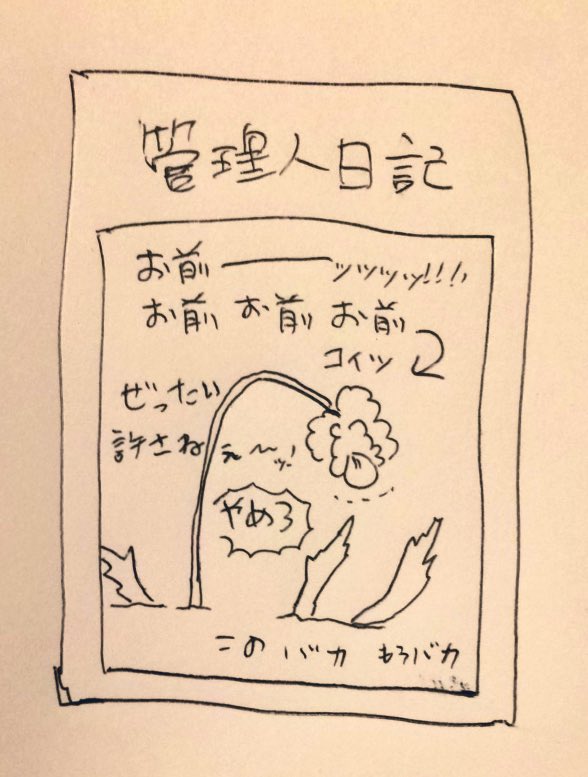 管理人日記
お前――ッッッッ!!!!
お前 お前 お前
コイツ
ぜったい
許さねぇ〜ッ!
やめろ
このバカ もうバカ